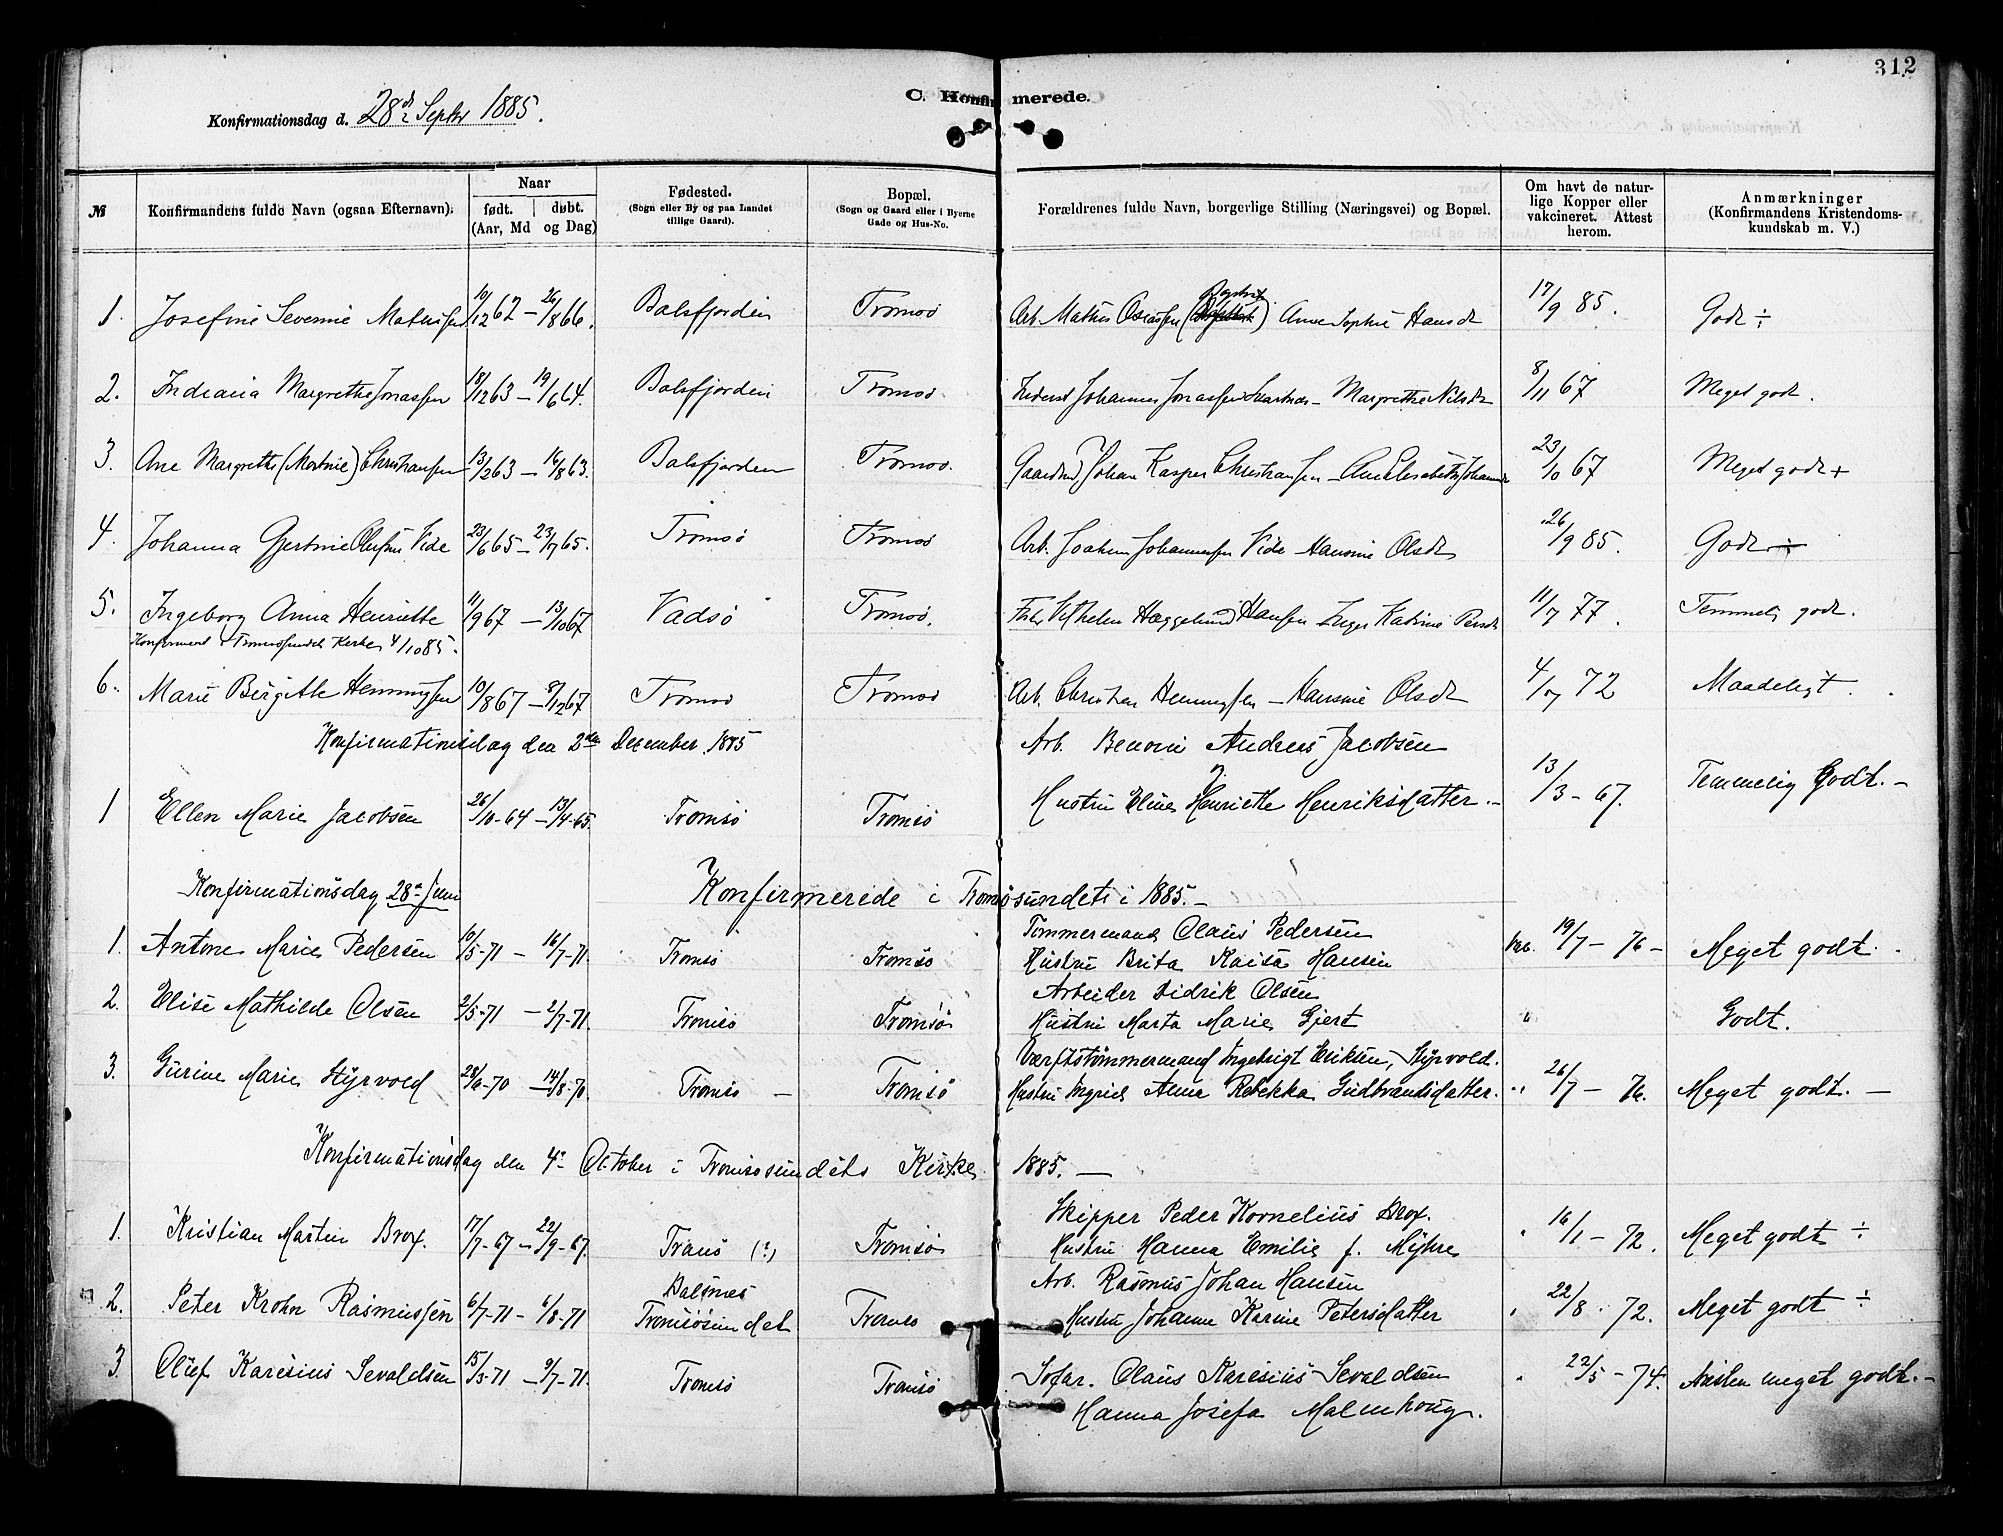 312
C. Konfirmerede.
Konfirmationsdag d. 28de Septbr 1885.
№
Konfirmandens fulde Navn (ogsaa Efternavn).
Naar
født. døbt.
(Aar, Md og Dag)
Fødested.
(Sogn eller By og paa Landet
tillige Gaard).
Bopæl.
(Sogn og Gaard eller i Byerne
Gade og Hus-No.
Forældrenes fulde Navn, borgerlige Stilling (Næringsvei) og Bopæl.
Om havt de natur-
lige Kopper eller
vakcineret. Attest
herom.
Anmærkninger
(Konfirmandens Kristendoms-
kundskab m. V.)
1. Josefine Severine Mathisen 10/12 62 – 26/8 66. Balsfjorden Tromsø Arb. Mathis Oseassen Ane Sophie Hansdt 17/9 85. Godt ÷
2. Indiana Margrethe Jonassen 18/12 63 – 19/6 64. Balsfjorden Tromsø Johannes Jonassen – Margrethe Nilsdt 8/11 67 Meget godt.
3. Ane Margrethe Christiansen 13/2 63 – 16/8 63. Balsfjorden Tromsø. Johan Kasper Christiansen – 23/10 67 Meget godt +
4. Johanna Gjertine Olufine Vide 23/6 65 – 23/7 65. Tromsø Tromsø Arb. Joakim Johannessen Vide – Hansine Olsdt 26/9 85. Godt ÷
5. Ingeborg Anna Henriette 11/9 67 – 13/10 67 Vadsø Tromsø. Vilhelm Hæggelund Hansen Inger Katrine Persdt 11/7 77. Temmelig godt.
Konfirmeret i Tromsøsundets Kirke 4/10 85.
6. Marie Birgitte Hemmingsen 10/8 67 – 8/12 67 Tromsø Tromsø Arb. Christian Hemmingsen – Hansine Olsdt 4/7 72 Maadeligt.
Konfirmationsdag den 2den December 1885
Arb. Benoni Andreas Jacobsen
1 Ellen Marie Jacobsen 26/10-64 – 13/4-65. Tromsø Tromsø Hustru Eline Henriette Henriksdatter. – 13/3 – 67. Temmelig Godt. –
Konfirmationsdag 28de Juni
Konfirmerede i Tromsøsundet i 1885. –
Tømmermand Olaus Pedersen
1. Antone Marie Pedersen 10/5-71 – 16/7-71. Tromsø Tromsø Hustru Brita Kaisa Hansen 19/7 – 76 – Meget godt.
Arbeider Didrik Olsen
2. Elise Mathilde Olsen 2/5-71 – 2/7-71. Tromsø Tromsø Hustru Marta Marie Gjert " Godt.
Værftstømmermand Ingebrigt Eriksen, Styrvold.
3. Gurine Marie Styrvold 28/6-70 – 14/8-70. Tromsø – Tromsø Hustru Ingrid Anna Rebekka Gudbrandsdatter. " 26/7 – 76. Meget godt. –
Konfirmationsdag den 4de October i Tromsøsundets Kirke 1885. –
Skipper Peder Kornelius Brox.
1. Kristian Martin Brox. 17/7-67 – 22/9-67. Tranø (?) Tromsø Hustru Hanna Emilie f. Myhre " 16/1 – 72. Meget godt ÷
Balsnes
Arb. Rasmus Johan Hansen
2. Peter Krohn Rasmussen 6/7-71 – 6/8-71 Tromsøsundet Tromsø Hustru Johanne Karine Petersdatter " 22/8 72. Meget godt ÷
3 Oluf Karesius Sevaldsen 15/3-71 – 9/7-71. Tromsø Tromsø Sofar. Olaus Karesius Sevaldsen " 22/5 – 74. Næsten meget godt. –
Hanna Josefa Malmhoug.